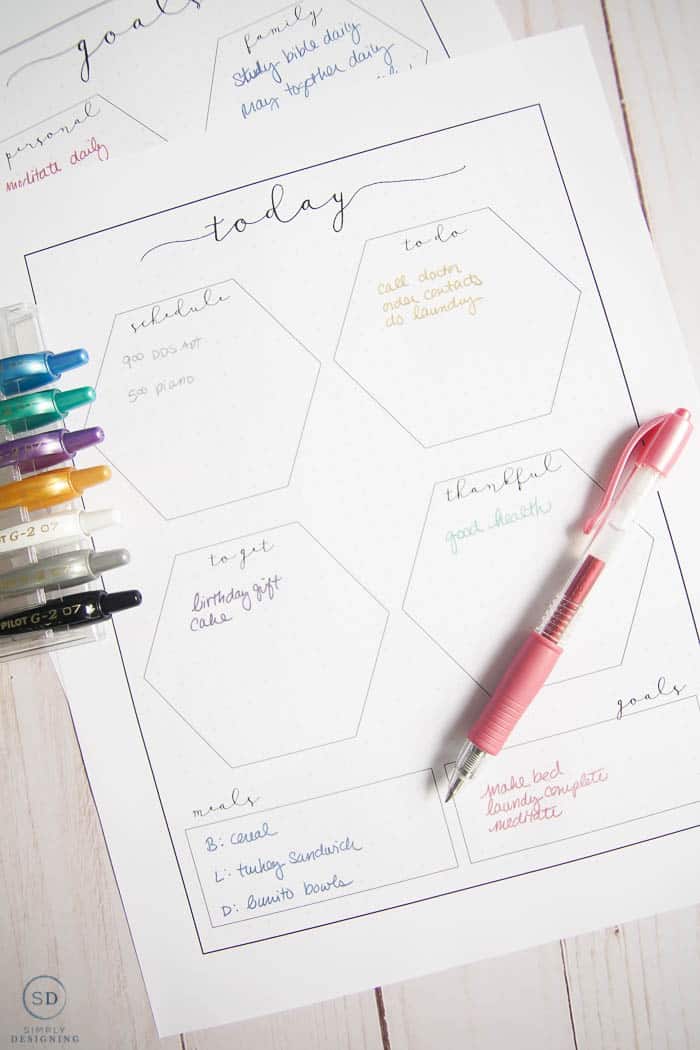 goals
family
study bible daily
play together daily
personal
meditate daily
today
schedule
900 DDS APT
500 piano
to do
call doctor
order contacts
do laundry
to get
birthday gift
cake
thankful
good health
meals
B: cereal
L: turkey sandwich
D: burrito bowls
goals
make bed
laundy complete
meditate
G-2 07
PILOT G-2 07
SD
SIMPLY
DESIGNING